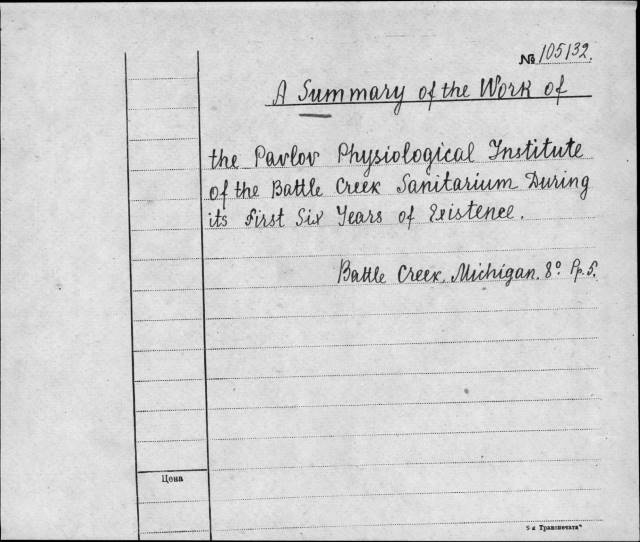 № 105132.
A Summary of the Work of
the Pavlov Physiological Institute
of the Battle Creek Sanitarium During
its First Six Years of Existence.
Battle Creek, Michigan. 8° Pp. 5.
Цена
5-я Транспечать"